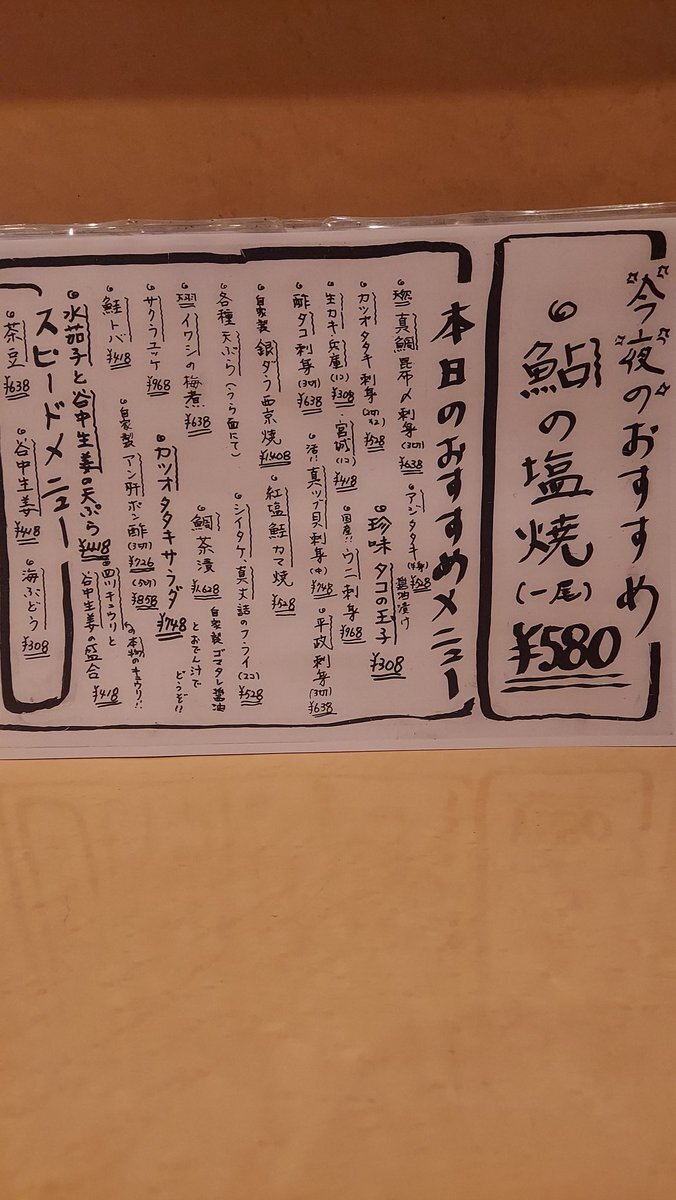 今夜のおすすめ
鮎の塩焼(一尾)¥580
本日のおすすめメニュー
真鯛昆布〆刺身(3切)¥638
アジタタキ(半身)¥528
醤油漬け
珍味タコの玉子¥308
カツオタタキ刺身 ¥528
生カキ兵庫(1コ)¥308・宮城(1コ)¥418
国産!!ウニ刺身¥968
酢タコ刺身(3切)¥638
活!!真ツブ貝刺身(中)¥748
平政刺身(3切)¥638
自家製銀ダラ西京焼¥1,408
紅塩鮭カマ焼¥528
各種天ぷら(うら面にて)
シイタケ真丈詰のフライ(2コ)¥528
イワシの梅煮¥638
鯛茶漬¥1,628
自家製ゴマタレ醤油
とおでん汁で
どうぞ!!
サクラユッケ¥968
カツオタタキサラダ¥748
鮭トバ¥418
自家製アン肝ポン酢(3切)¥726
(5切)¥858
四川キュウリと
谷中生姜の盛合¥418
水茄子と谷中生姜の天ぷら¥448
スピードメニュー
茶豆¥638
谷中生姜¥418
海ぶどう¥308